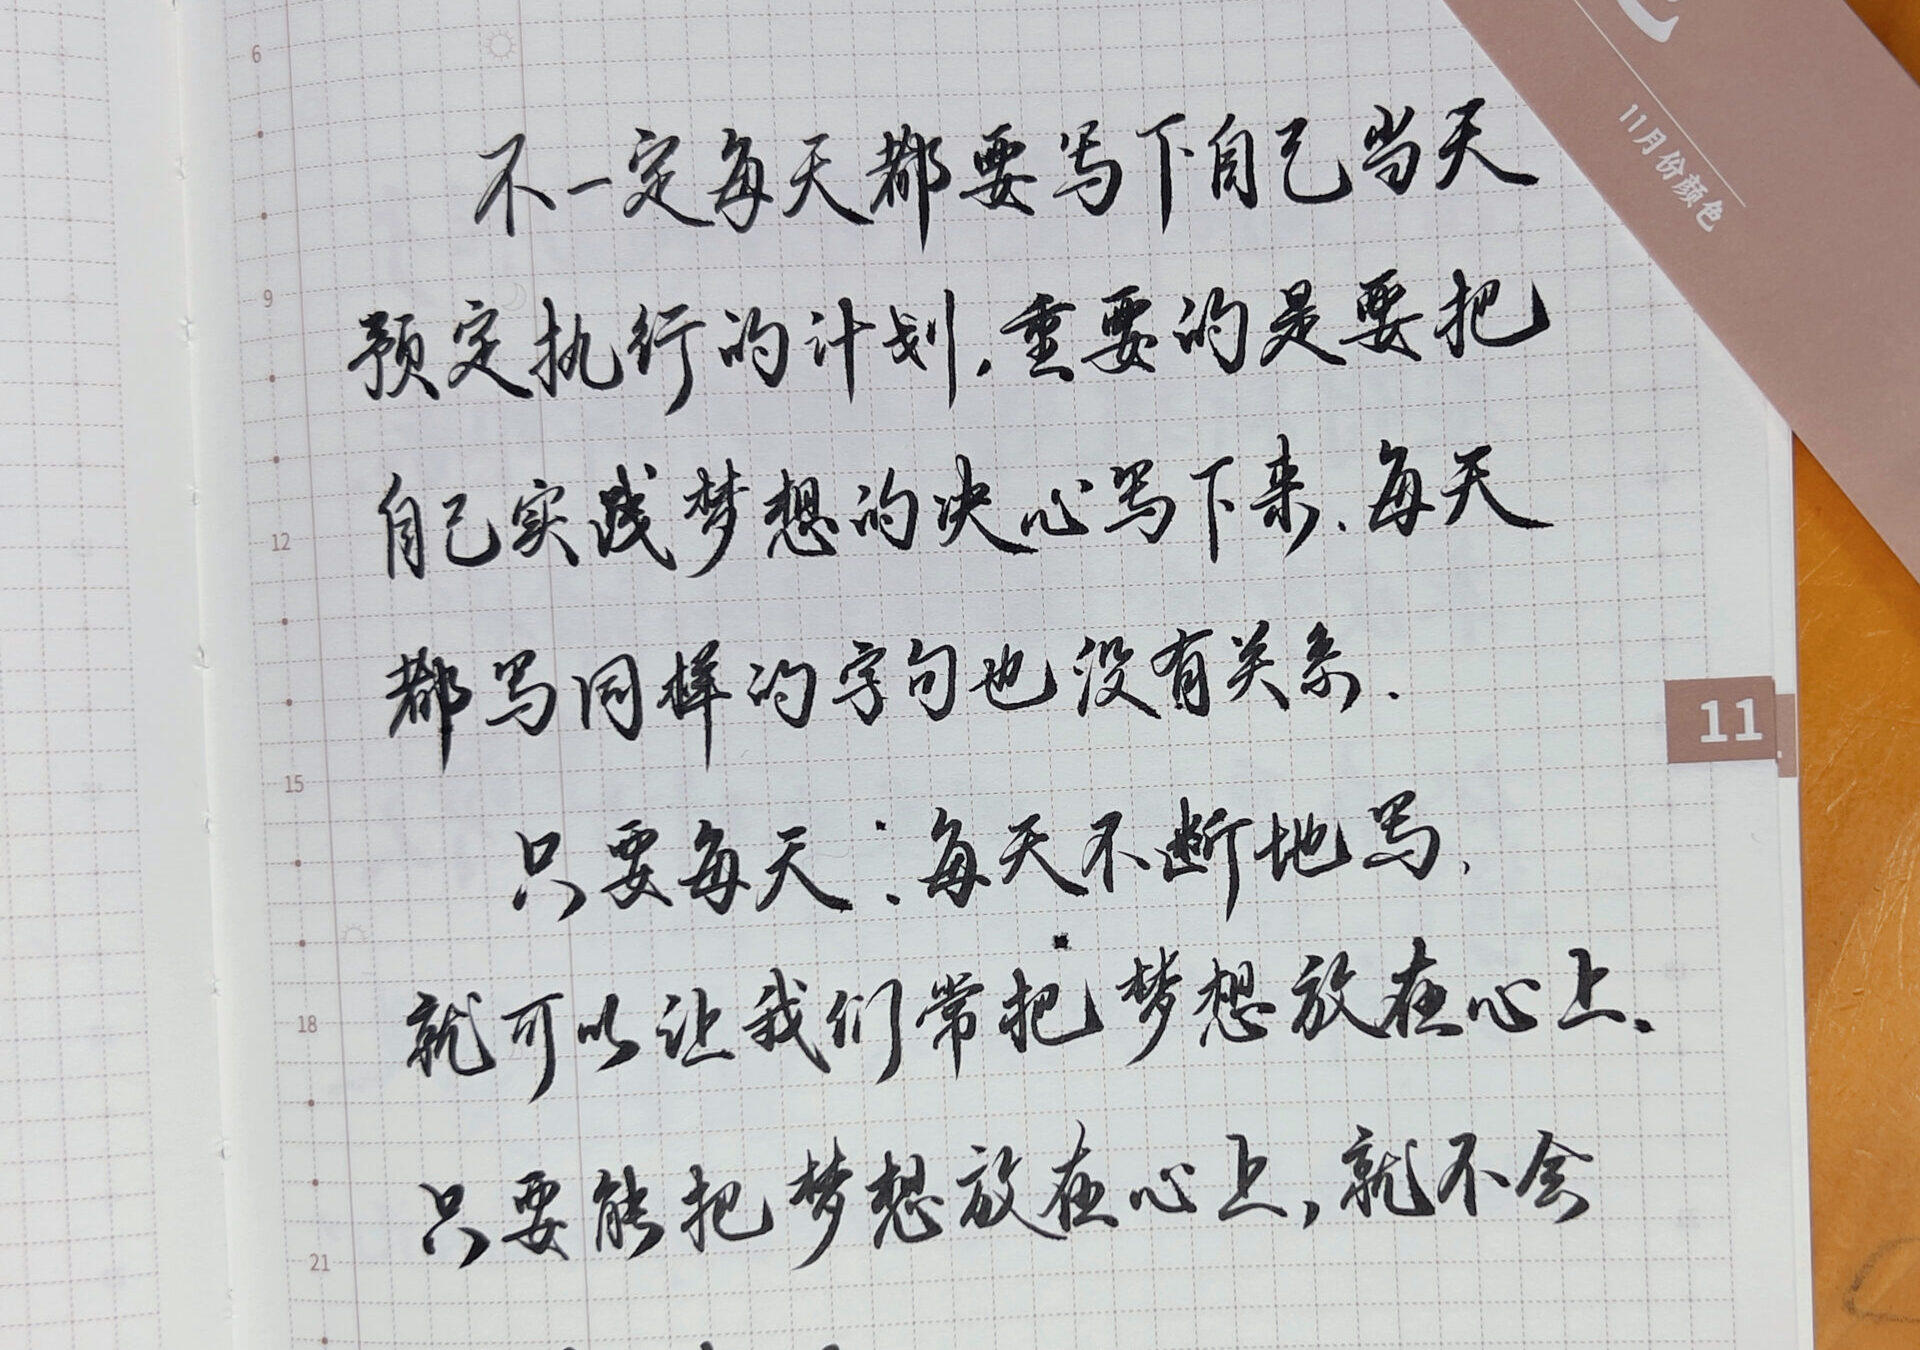 不一定每天都要写下自己当天
预定执行的计划.重要的是要把
自己实践梦想的决心写下来.每天
都写同样的字句也没有关系.
只要每天.每天不断地写.
就可以让我们常把梦想放在心上.
只要能把梦想放在心上,就不会
11月份颜色
11
6
9
12
15
18
21